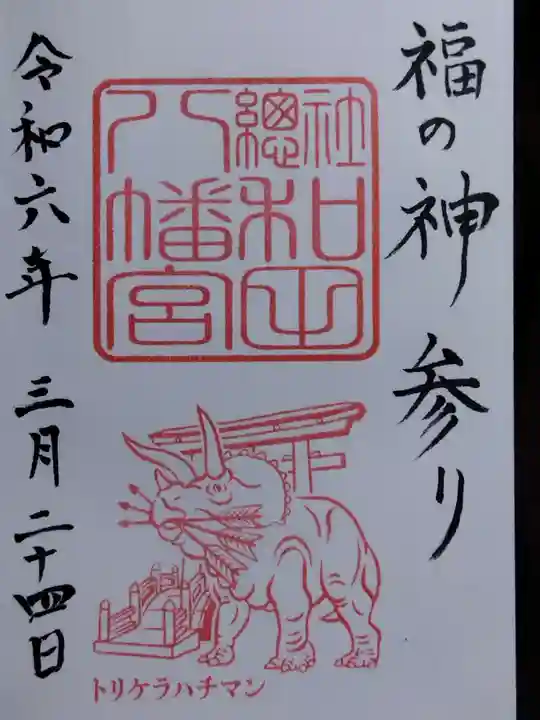 福の神参り
社總
和田
八幡宮
トリケラハチマン
令和六年 三月二十四日